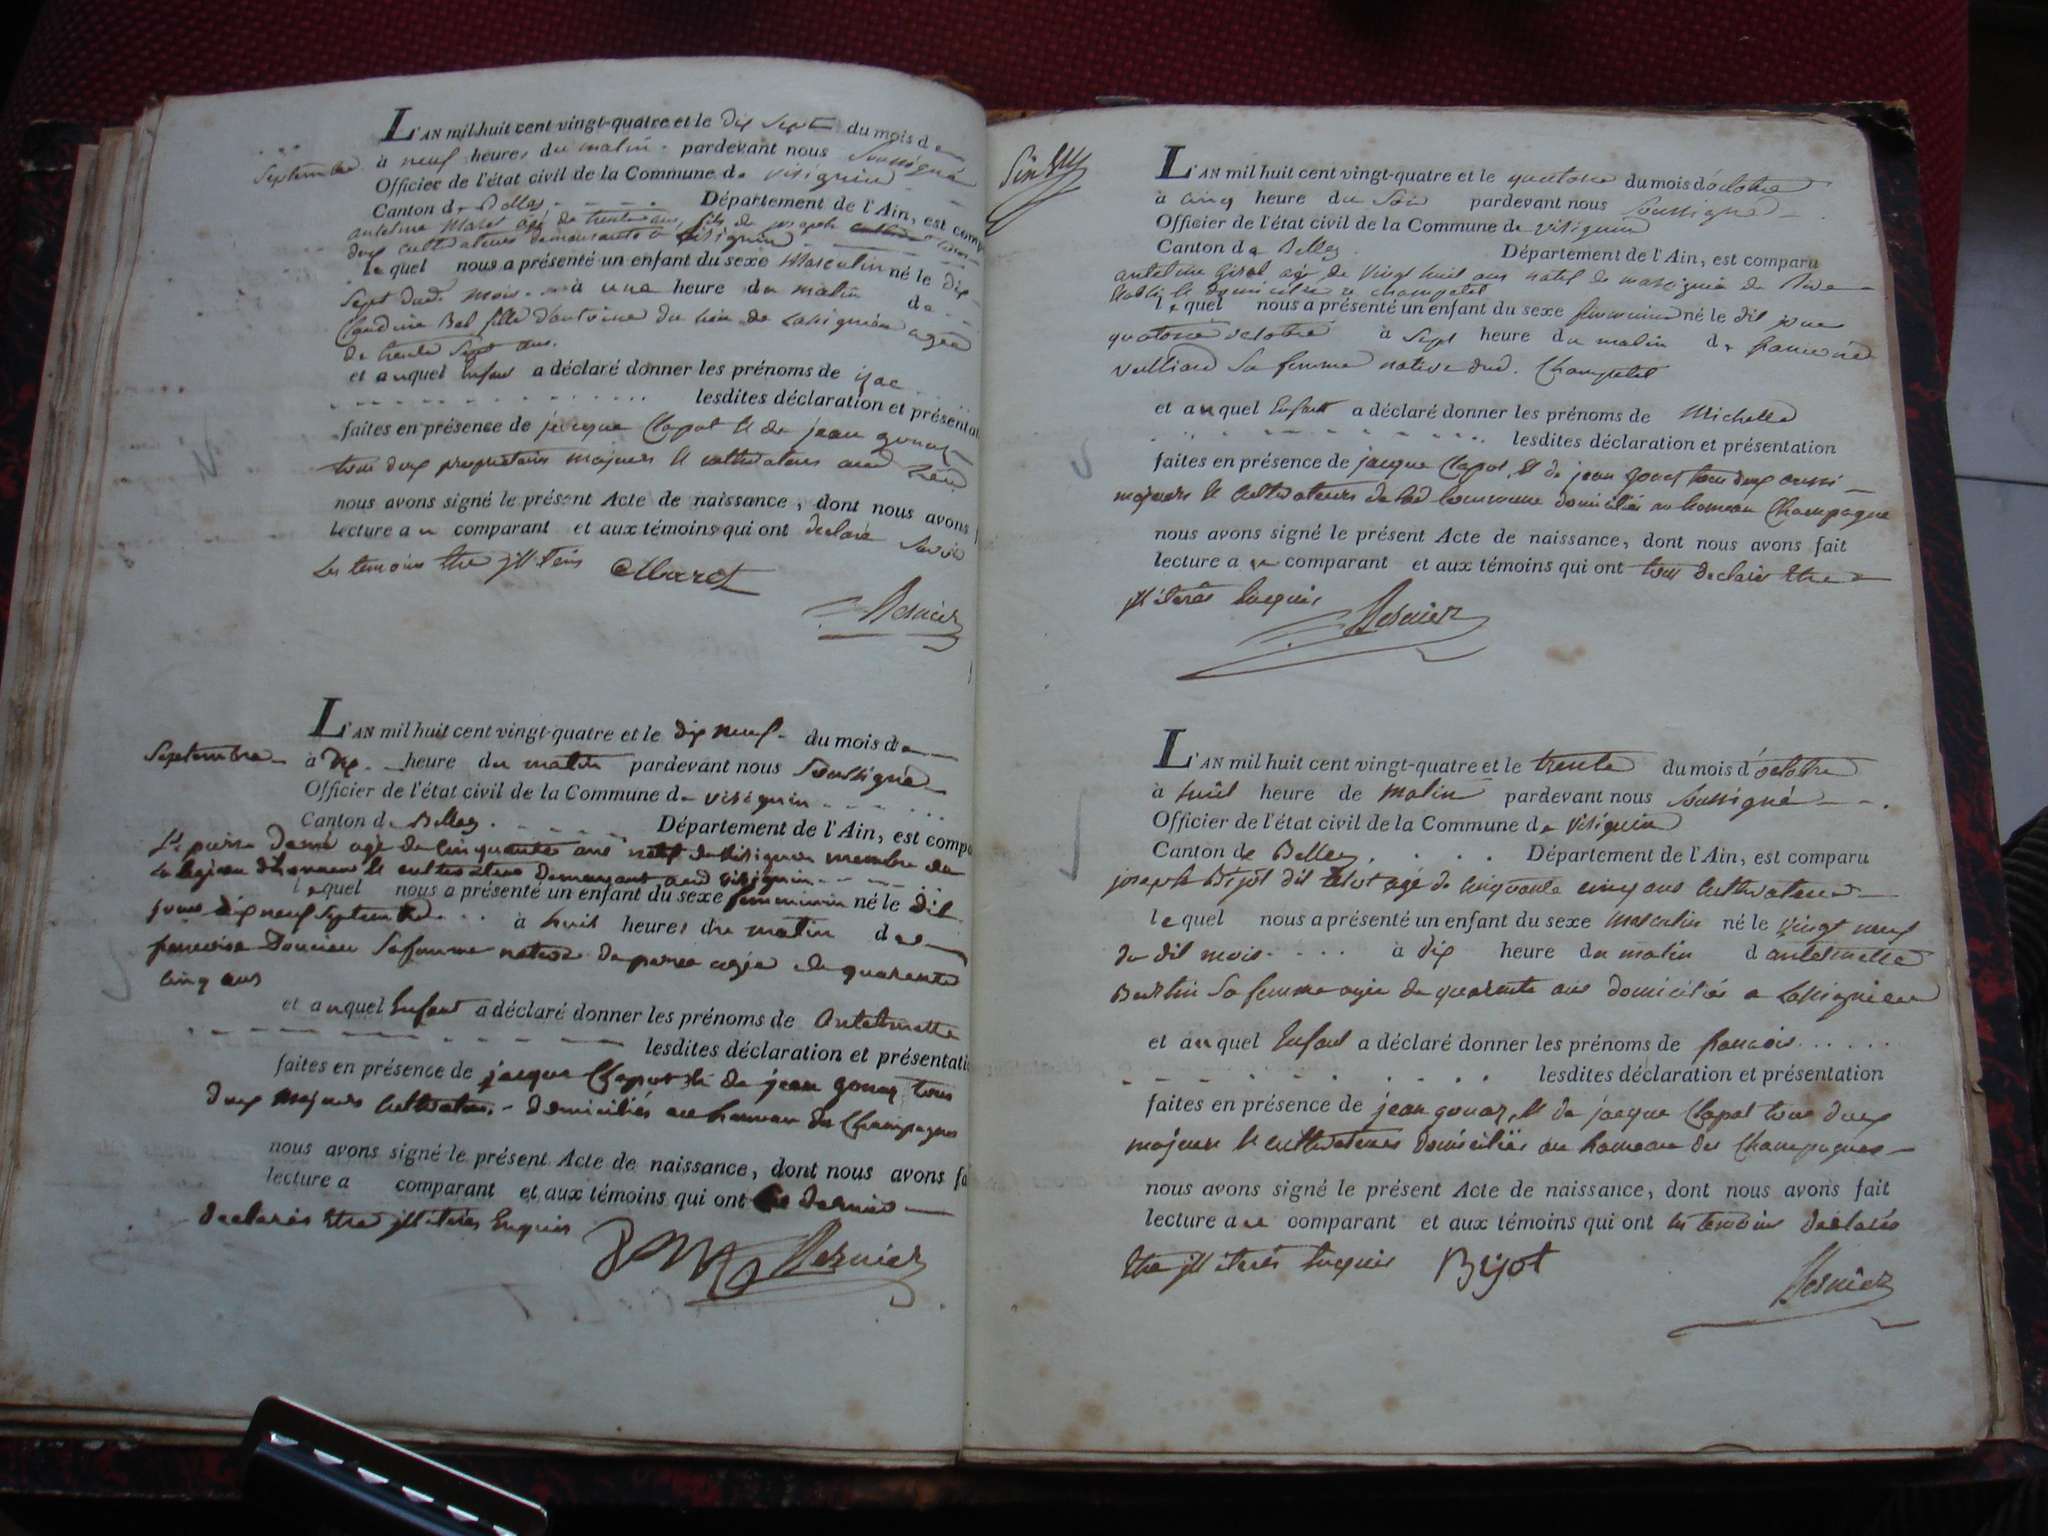 L'AN mil huit cent vingt-quatre et le dix sept du mois de
Septembre à neuf heures du matin pardevant nous Soussigné
Officier de l'état civil de la Commune de visignin
Canton de Belley Département de l'Ain, est comp
antelme Maret agé de trente ans, fils de joseph
deux cultivateurs demeurants a visignin
lequel nous a présenté un enfant du sexe Masculin né le dix
Sept dud. mois à une heure du matin de
Claudine Bal fille d'antoine du lieu de Lassignieu agée
de trente sept ans.
et auquel Enfant a déclaré donner les prénoms de izac
lesdites déclaration et présentat
faites en présence de jacque Clapot & de jean gonaz
tous deux proprietaires majeurs & cultivateurs aud
nous avons signé le présent Acte de naissance, dont nous avons
lecture au comparant et aux témoins qui ont declaré
les temoins être illiteris Maret
Resnier
L'AN mil huit cent vingt-quatre et le dix neuf du mois de
Septembre à dix heure du matin pardevant nous Soussigné
Officier de l'état civil de la Commune de visignin
Canton de Belley Département de l'Ain, est comp
Sr pierre agé de cinquante ans natif de visignin membre de
la légion d'honneur & cultivateur demeurant aud visignin
lequel nous a présenté un enfant du sexe femminin né le dit
jour dix neuf Septembre à huit heures du matin de
francoise Doucien Sa femme native de agée de quarente
cinq ans
et auquel Enfant a déclaré donner les prénoms de Antelmette
lesdites déclaration et présentati
faites en présence de jacque Clapot & de jean gonaz tous
deux majeurs Cultivateurs domiciliés au hameau de Champagne
nous avons signé le présent Acte de naissance, dont nous avons fa
lecture a comparant et aux témoins qui ont ce dernier
declarés être illiterés Enquis
Resnier
L'AN mil huit cent vingt-quatre et le quatorze du mois d'octobre
à cinq heure du Soir pardevant nous Soussigné
Officier de l'état civil de la Commune de visignin
Canton de Belley Département de l'Ain, est comparu
antelme girel agé de vingt huit ans natif de massignieu de Rive
& domicilié a champetel
lequel nous a présenté un enfant du sexe femminin né le dit jour
quatorze octobre à Sept heure du matin de francoise
vulliard Sa femme native dud. Champetel
et auquel Enfant a déclaré donner les prénoms de Michelle
lesdites déclaration et présentation
faites en présence de jacque Clapot & de jean gonaz tous deux aussi
majeurs & Cultivateurs de lad Commune domiciliés au hameau Champagne
nous avons signé le présent Acte de naissance, dont nous avons fait
lecture au comparant et aux témoins qui ont tous declarés être
illiterés Enquis
Resnier
L'AN mil huit cent vingt-quatre et le trente du mois d'octobre
à huit heure de Matin pardevant nous Soussigné
Officier de l'état civil de la Commune de visignin
Canton de Belley Département de l'Ain, est comparu
joseph Bijot dit agé de cinquante cinq ans Cultivateur
lequel nous a présenté un enfant du sexe masculin né le vingt neuf
du dit mois à dix heure du matin d antelmette
Berthin Sa femme agée de quarente ans domiciliés a Lassignieu
et auquel Enfant a déclaré donner les prénoms de francois
lesdites déclaration et présentation
faites en présence de jean gonaz, & de jacque Clapot tous deux
majeurs & cultivateurs domiciliés au hameau des Champagnes
nous avons signé le présent Acte de naissance, dont nous avons fait
lecture au comparant et aux témoins qui ont les temoins declarés
être illiterés Enquis Bijot
Resnier